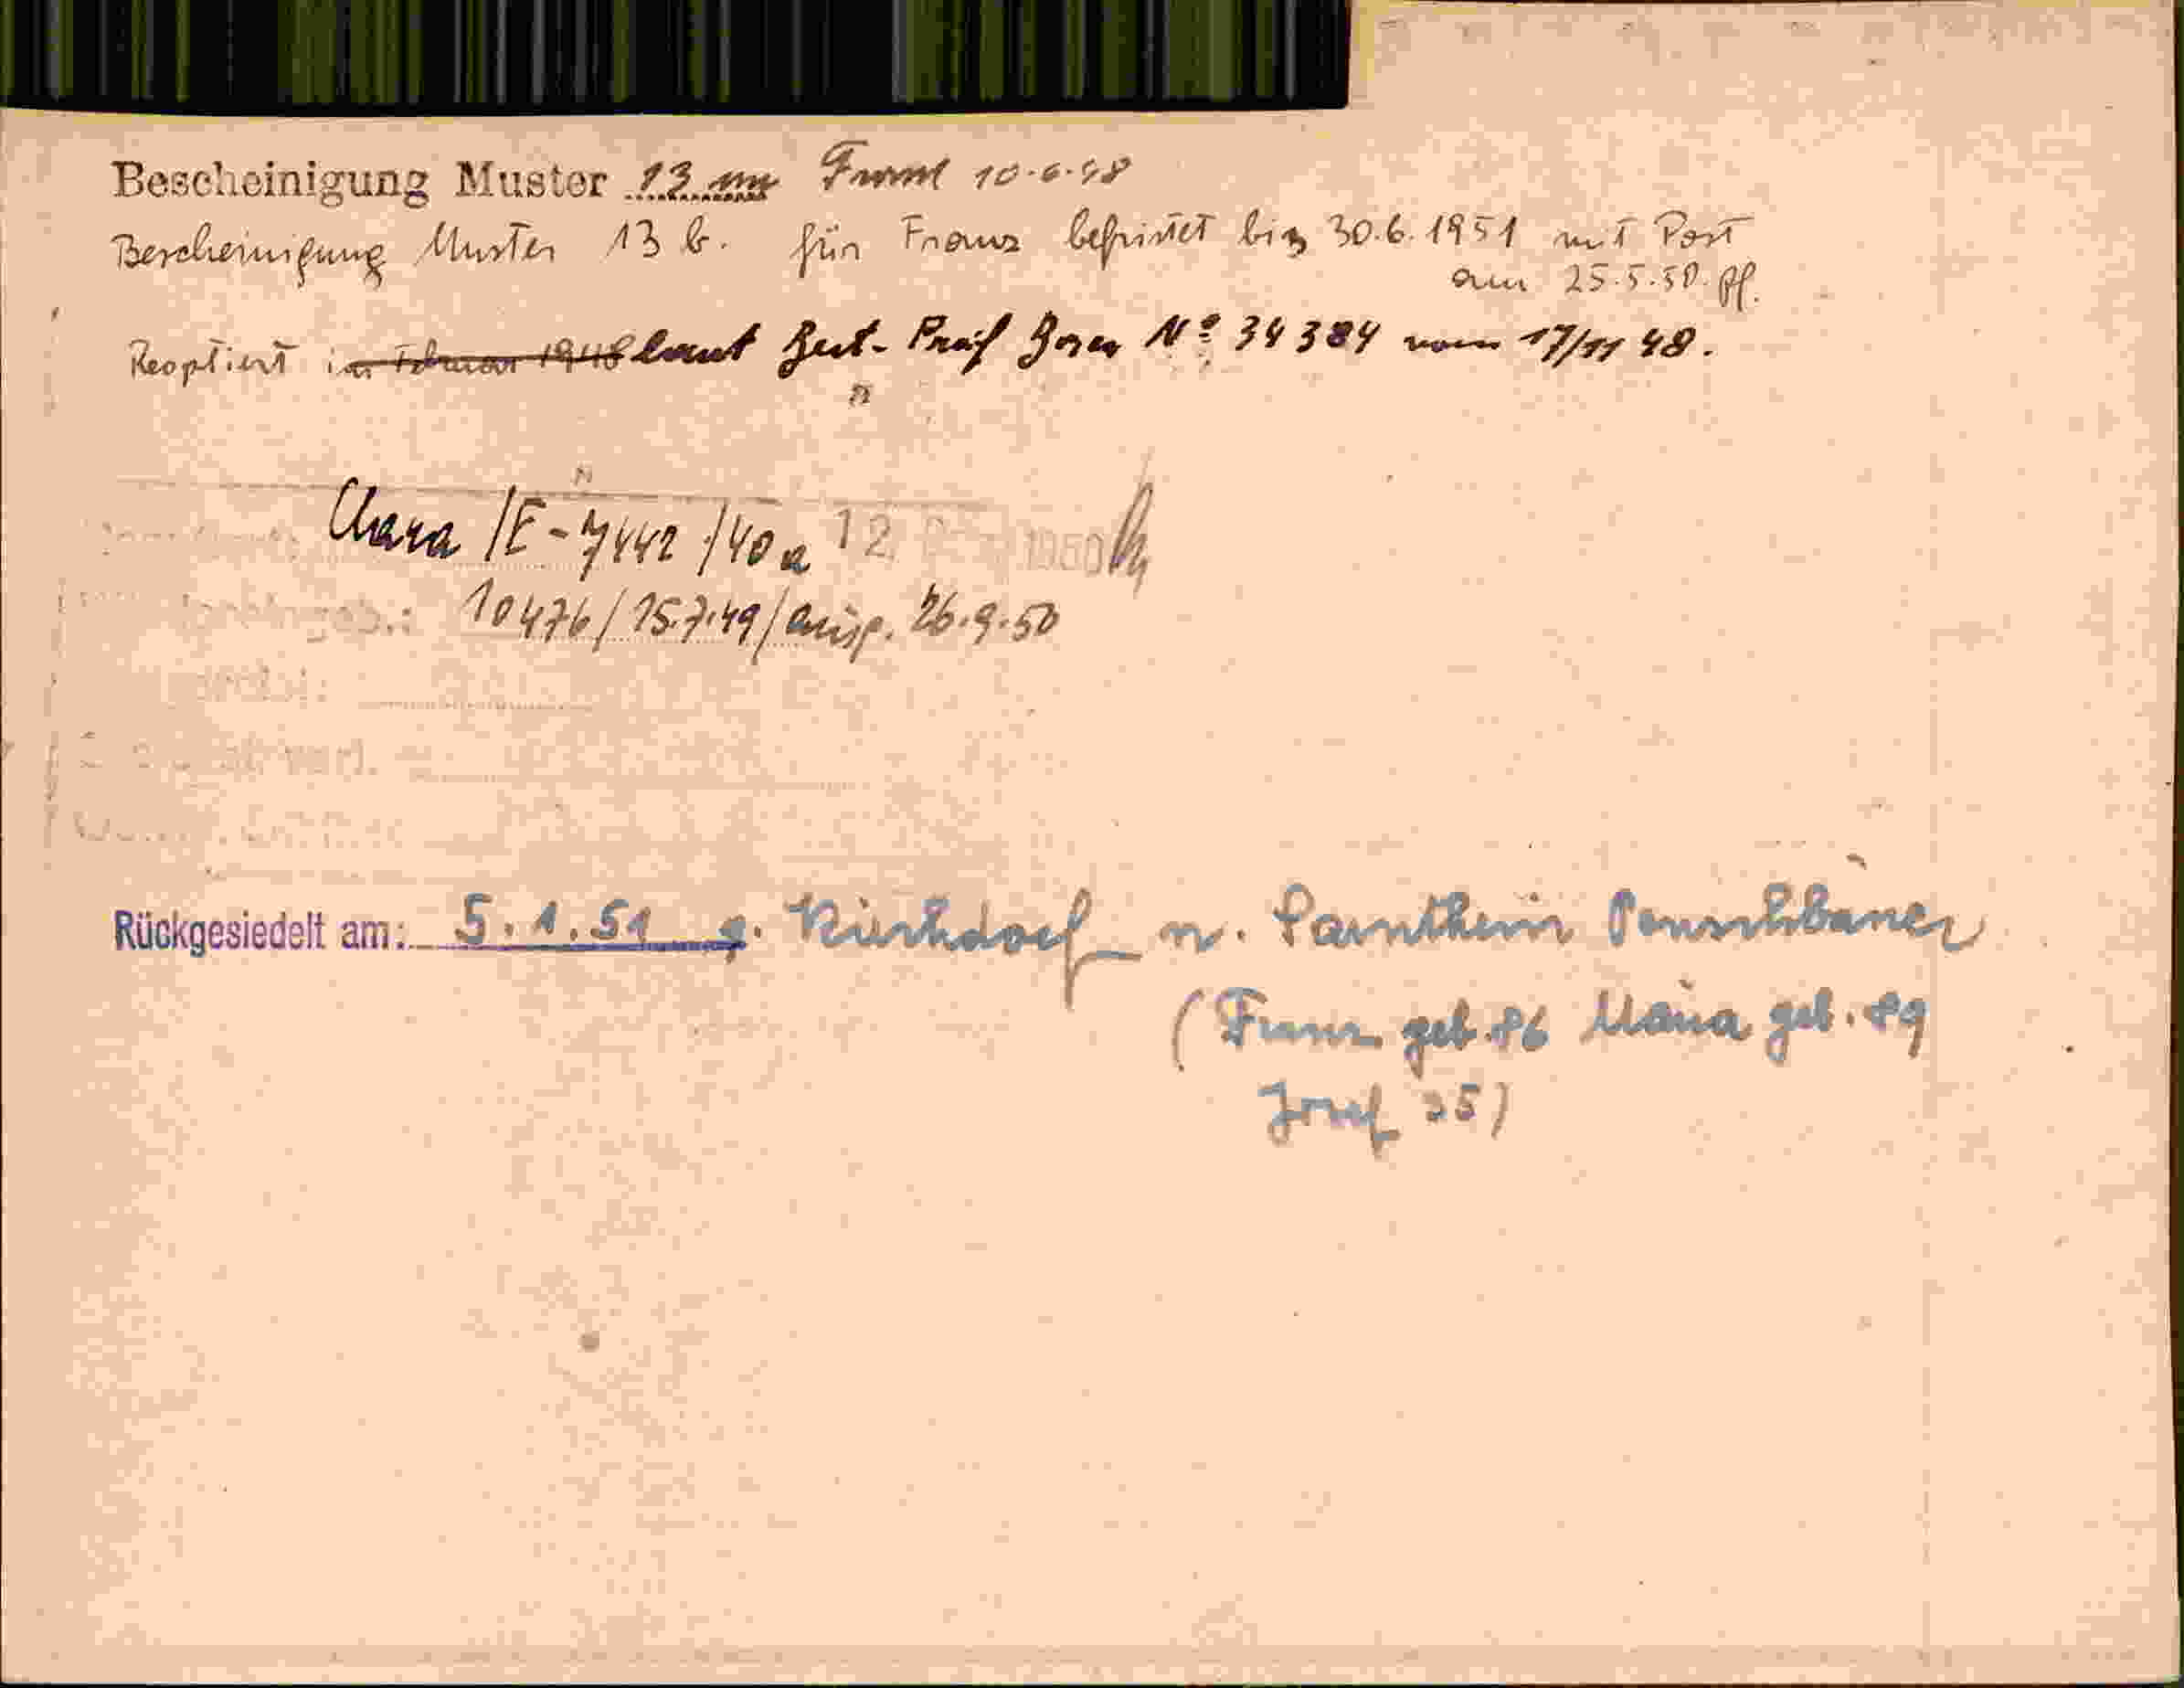 Bescheinigung Muster 13 Franz 10.6.48
Bescheinigung Muster 13 b. für Franz befristet bis 30.6.1951 mit Post
am 25.5.50.
Reoptiert im Februar 1948 laut Gut. Präf Bozen Nº 34384 vom 17/11 48.
Chara /E-7442/40a 12 1950
10476/15.7.49/ausp. 26.9.50
Rückgesiedelt am: 5.1.51 g. Kirchdorf n. Sarnthein
(Franz geb. 86 Maria geb. 89
Josef 35)